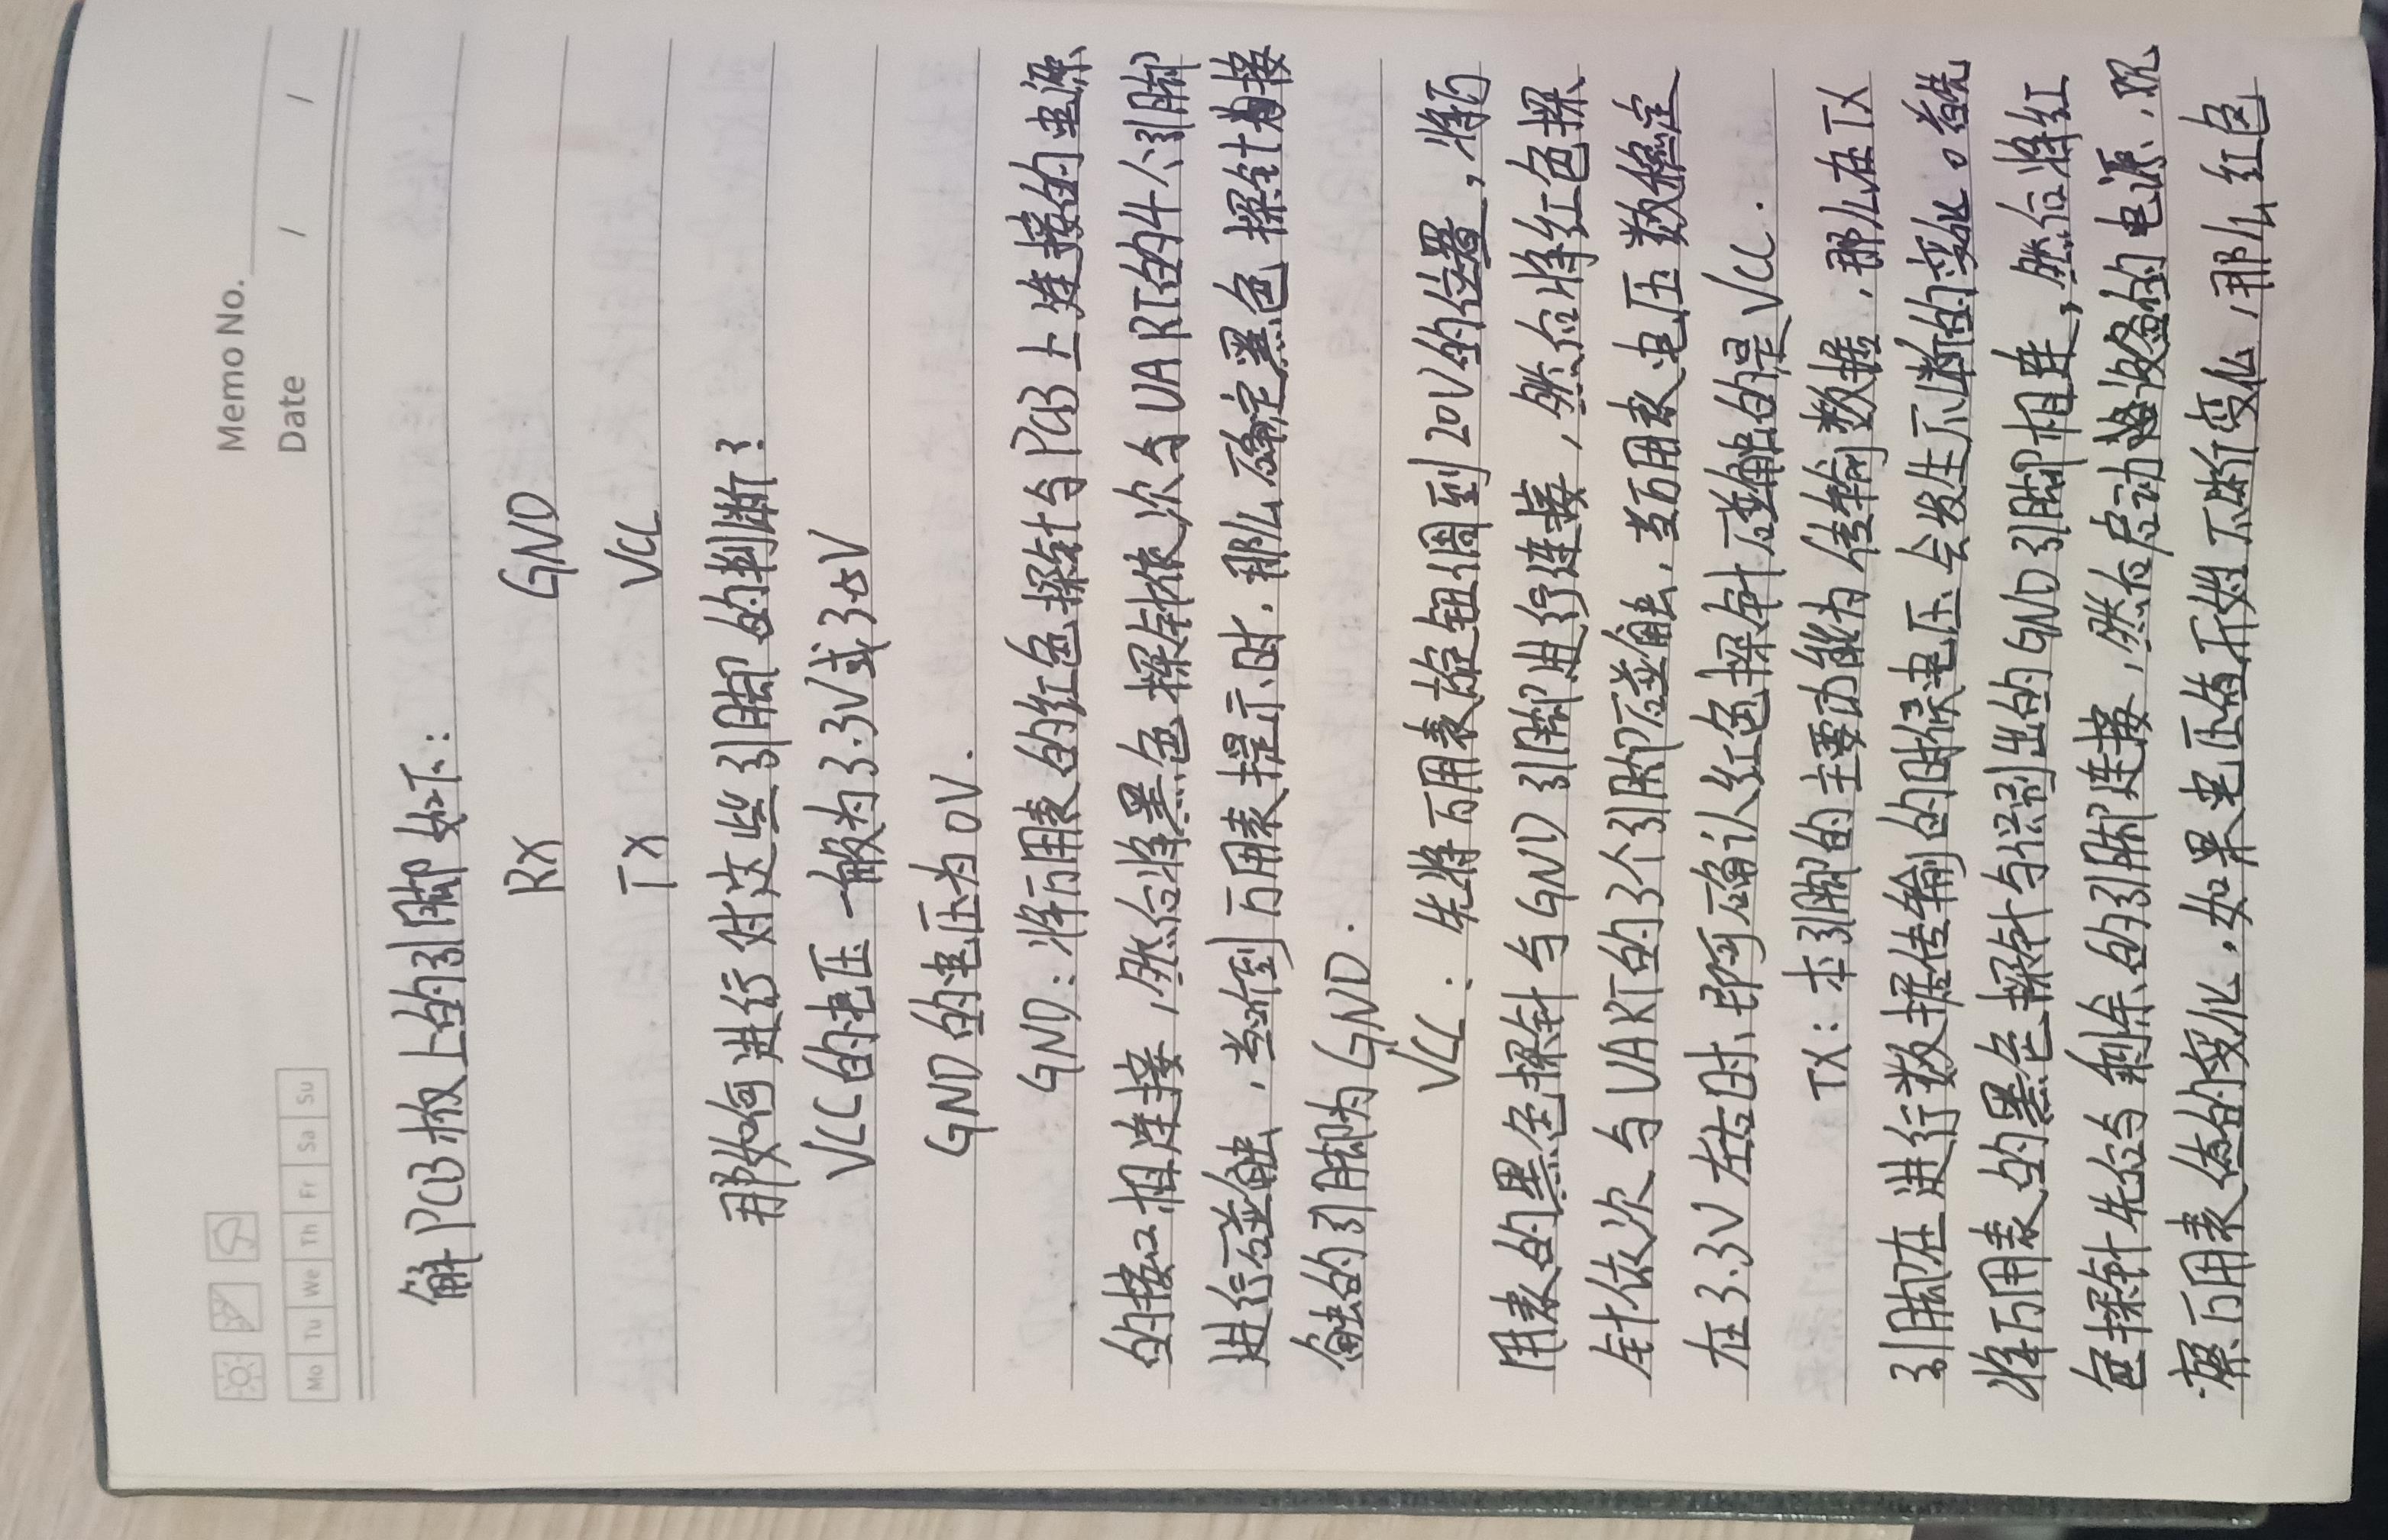 Memo No.
Mo Tu We Th Fr Sa Su
Date / /
解PCB板上的引脚如下:
RX GND
TX VCC
那如何进行对这些引脚的判断?
VCC的电压一般为3.3V或3.5V
GND的电压为0V.
GND:将万用表的红色探针与PCB上连接的电源
的接口相连接,然后将黑色探针依次与UART的4个引脚
进行碰触,当听到万用表提示时,那么确定黑色探针为接
触的引脚为GND.
VCC:先将万用表旋钮调到20V的位置,将万
用表的黑色探针与GND引脚进行连接,然后将红色探
针依次与UART的3个引脚碰触,当万用表电压数稳定
在3.3V左右时,即可确认红色探针碰触的是VCC.
TX:本引脚的主要功能为传输数据,那么在TX
引脚在进行数据传输的时候电压会发生不断的变化。首先
将万用表的黑色探针与识别出的GND引脚相连,然后将红
色探针先后与剩余的引脚连接,然后启动设备的电源,观
察万用表值的变化,如果电压值不断变化,那么红色